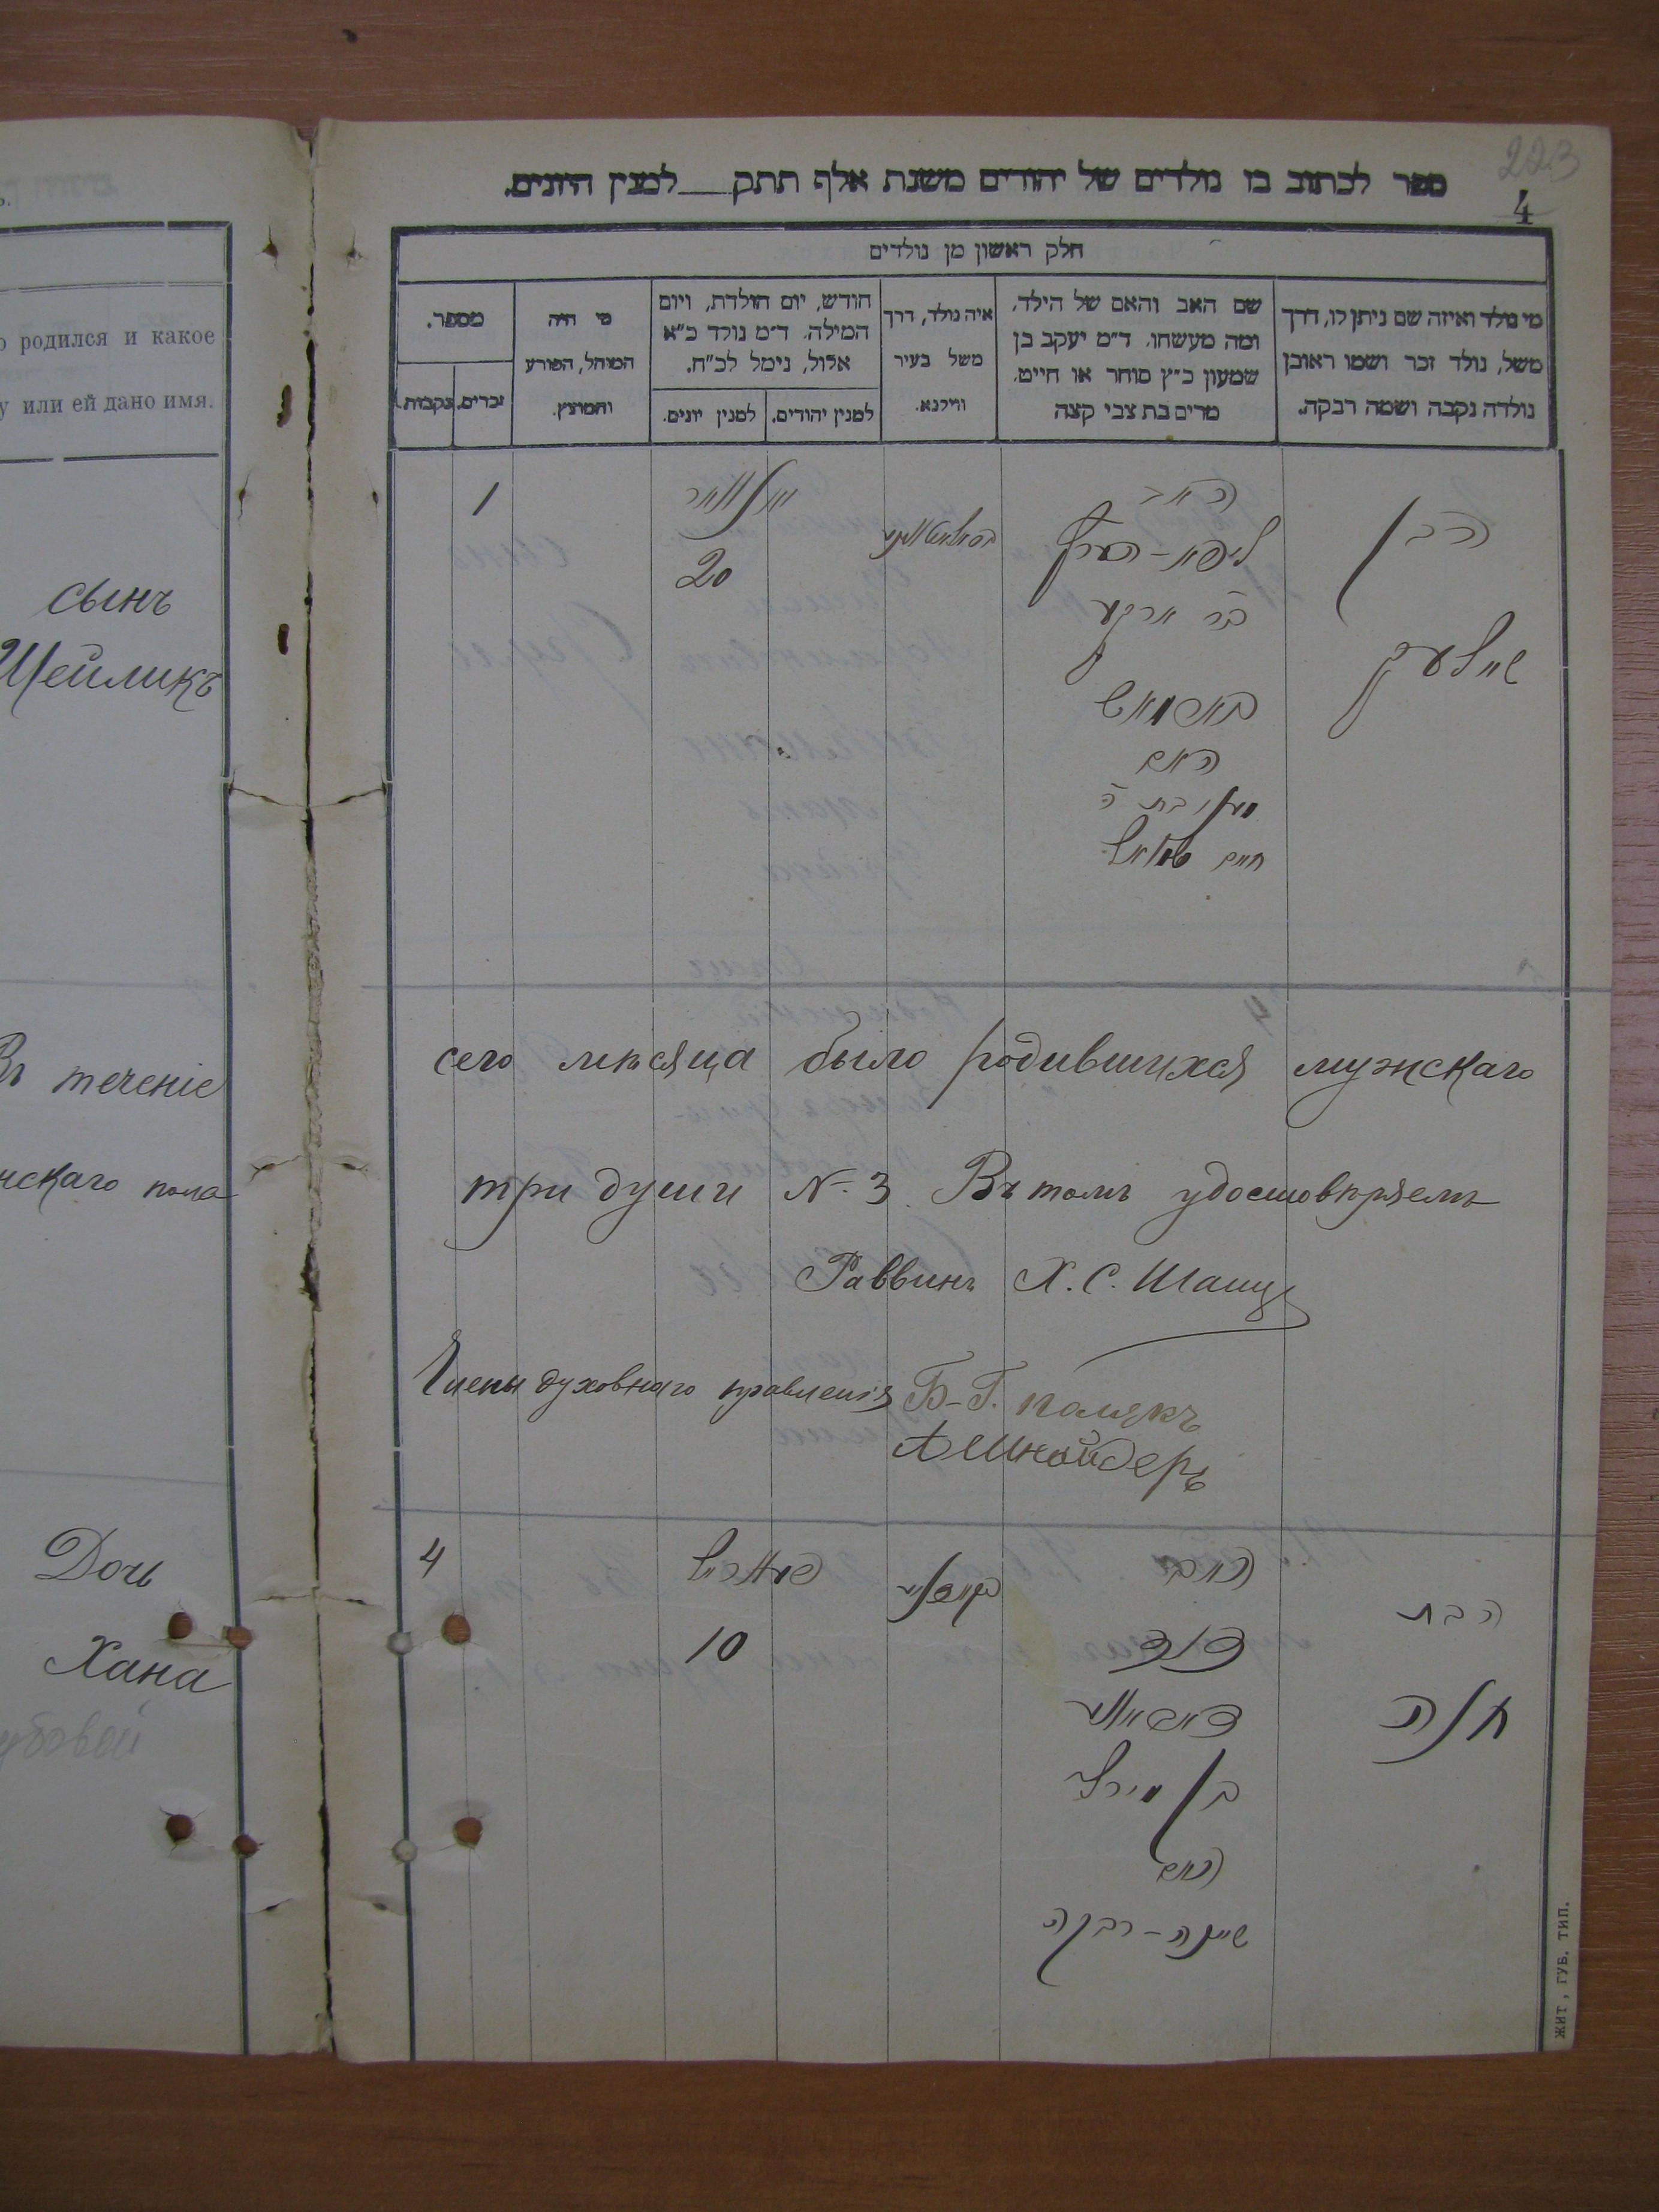 223
4
ספר לכתוב בו נולדים של יהודים משנת אלף תתק למנין היונים.
חלק ראשון מן נולדים
מי נולד ואיזה שם ניתן לו, דרך
משל, נולד זכר ושמו ראובן
נולדה נקבה ושמה רבקה.
שם האב והאם של הילד,
ומה מעשהו. ד״מ יעקב בן
שמעון כ״ץ סוחר או חייט.
מרים בת צבי קצה
איה נולד, דרך
משל בעיר
ווילנא.
חודש, יום הולדת, ויום
המילה. ד״מ נולד כ״א
אלול, נימל לכ״ח.
למנין יהודים.
למנין יונים.
מי היה
המוהל, הפורע
והמוצץ.
מספר.
זכרים.
נקבות.
родился и какое
или ей дано имя.
сынъ
Шейликъ
הבן
שיילעק
האב
האם
חיים
יאנואר
20
1
Въ теченіе
сего мѣсяца было родившихся мужскаго
пола
три души № 3 Въ томъ удостовѣряемъ
Раввинъ Х. С. Шацъ
Члены духовнаго правленія Б-Г. Полякъ
А Шнайдеръ
Дочь
Хана
הבת
חנה
האב
דוד
בן
האם
שיינה-רבקה
10
4
ЖИТ, ГУБ. ТИП.